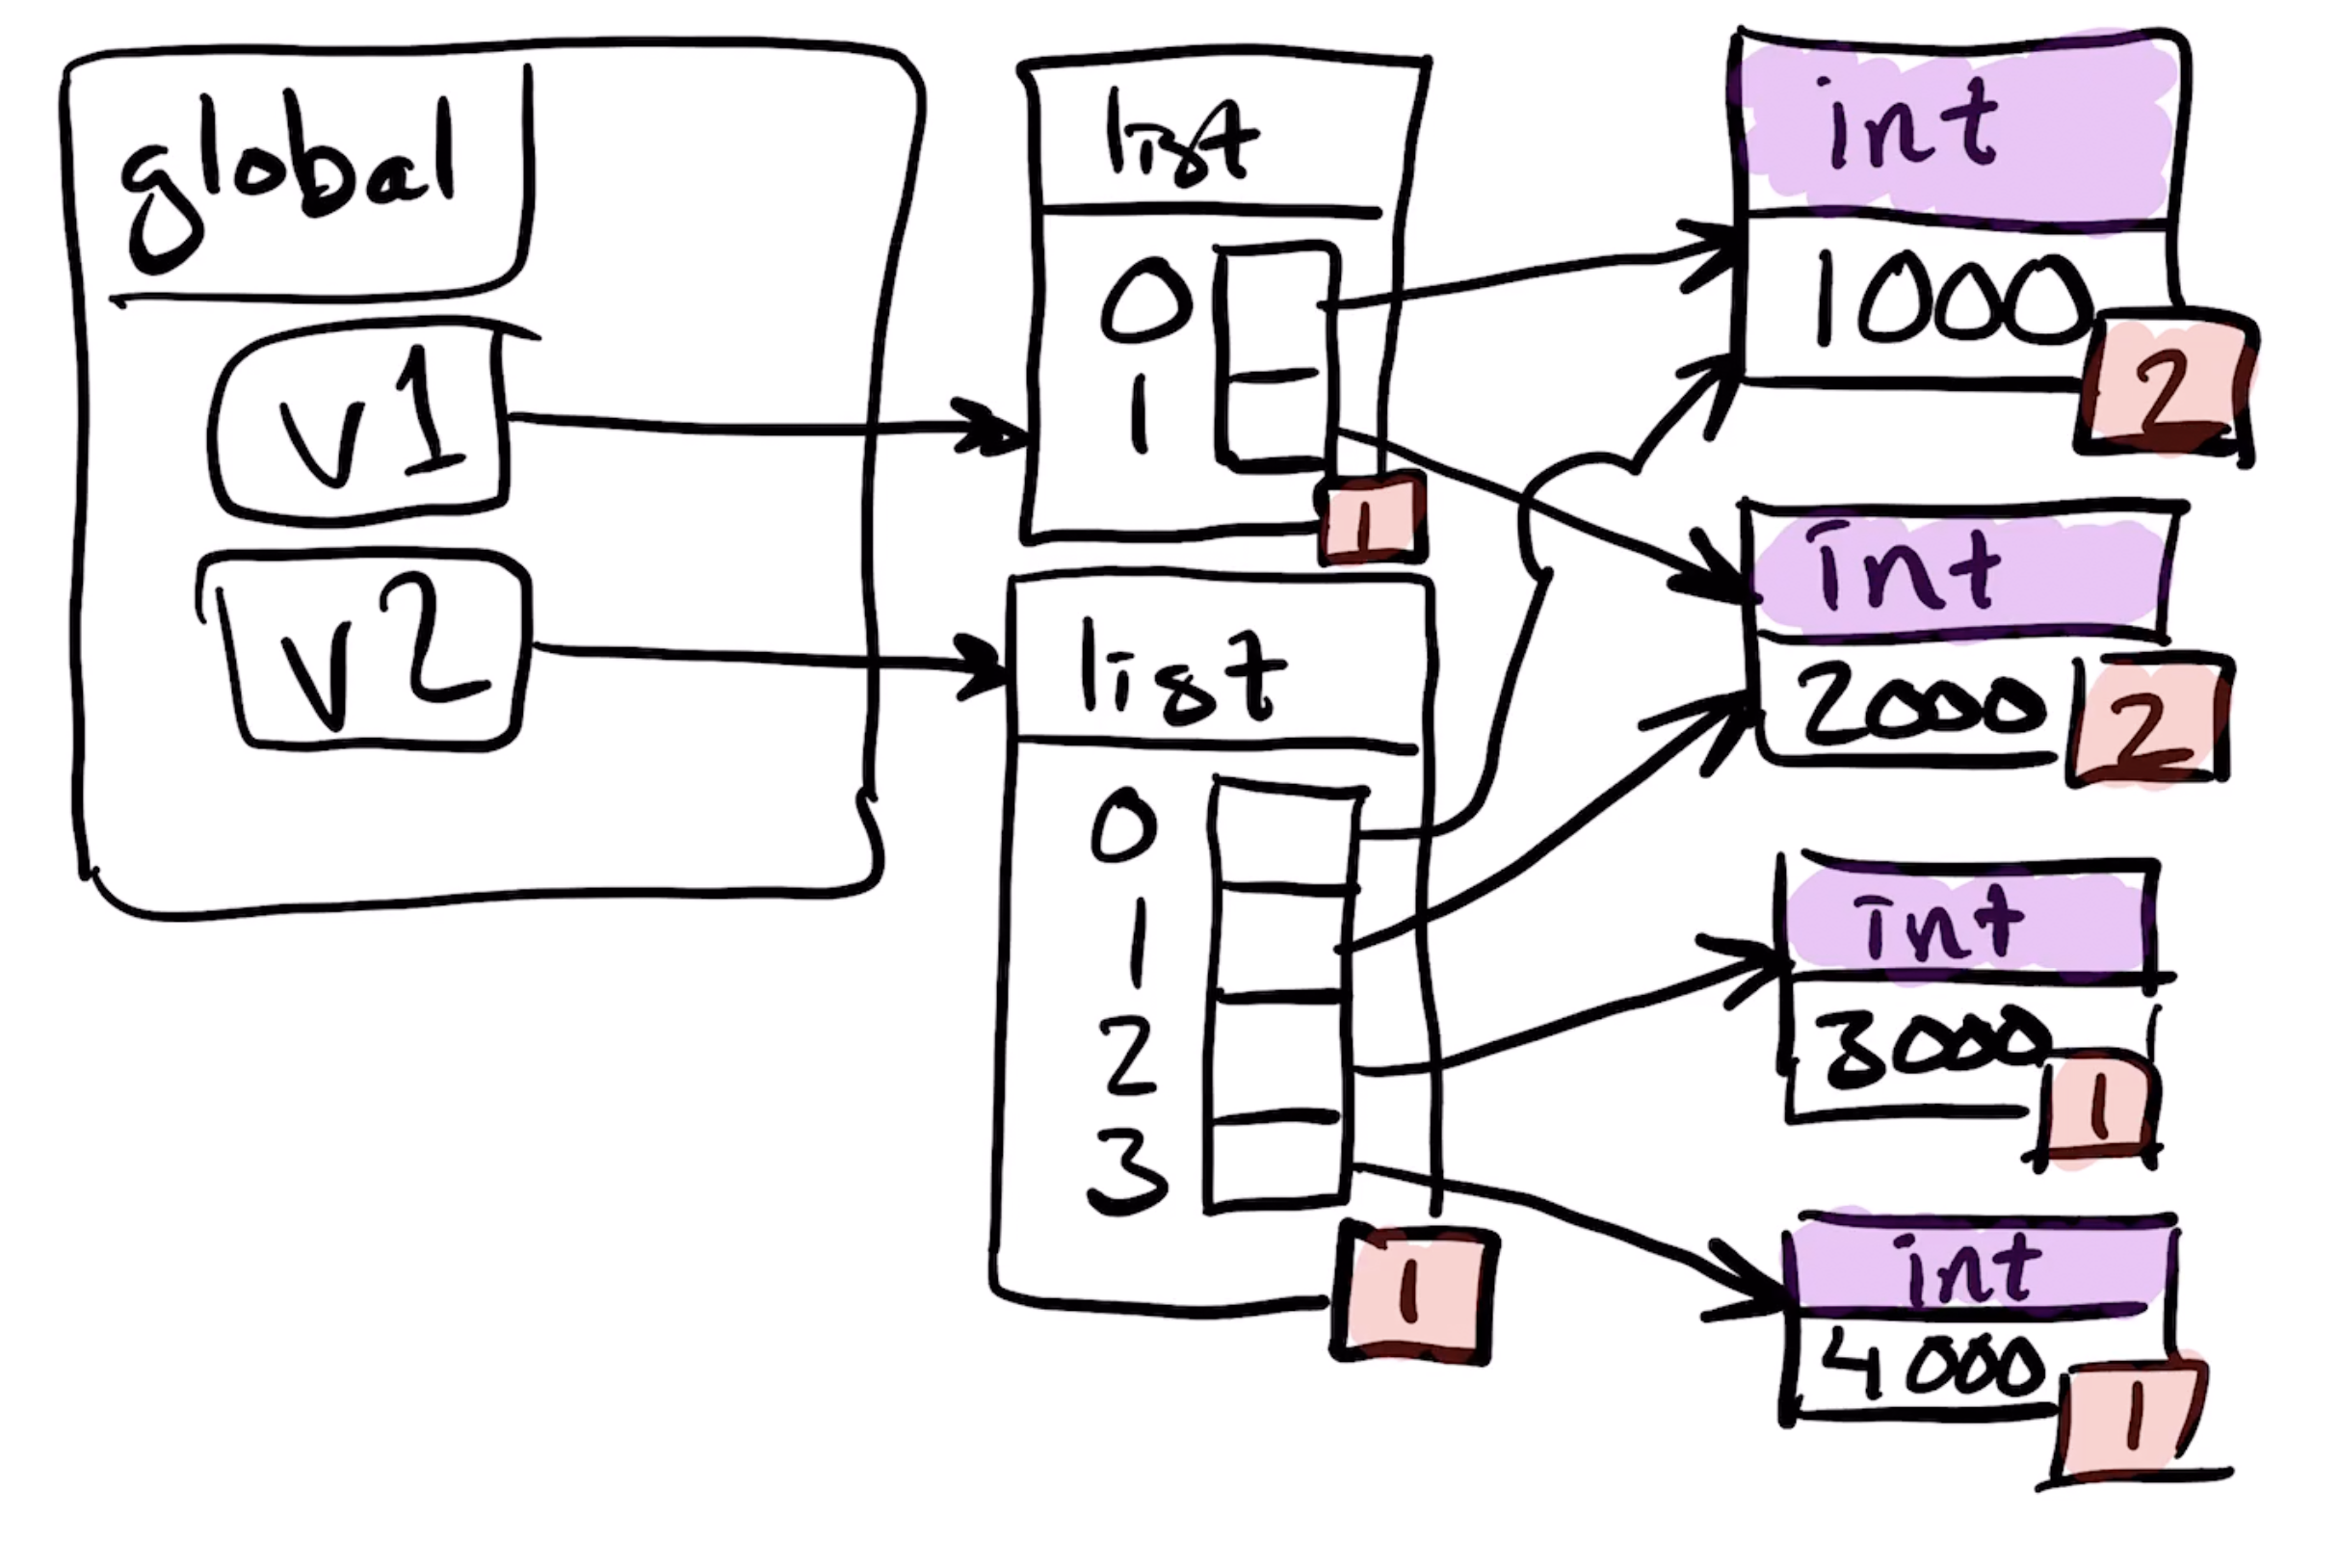 global
v1
v2
list
0
1
1
list
0
1
2
3
1
int
1000
2
int
2000
2
int
3000
1
int
4000
1